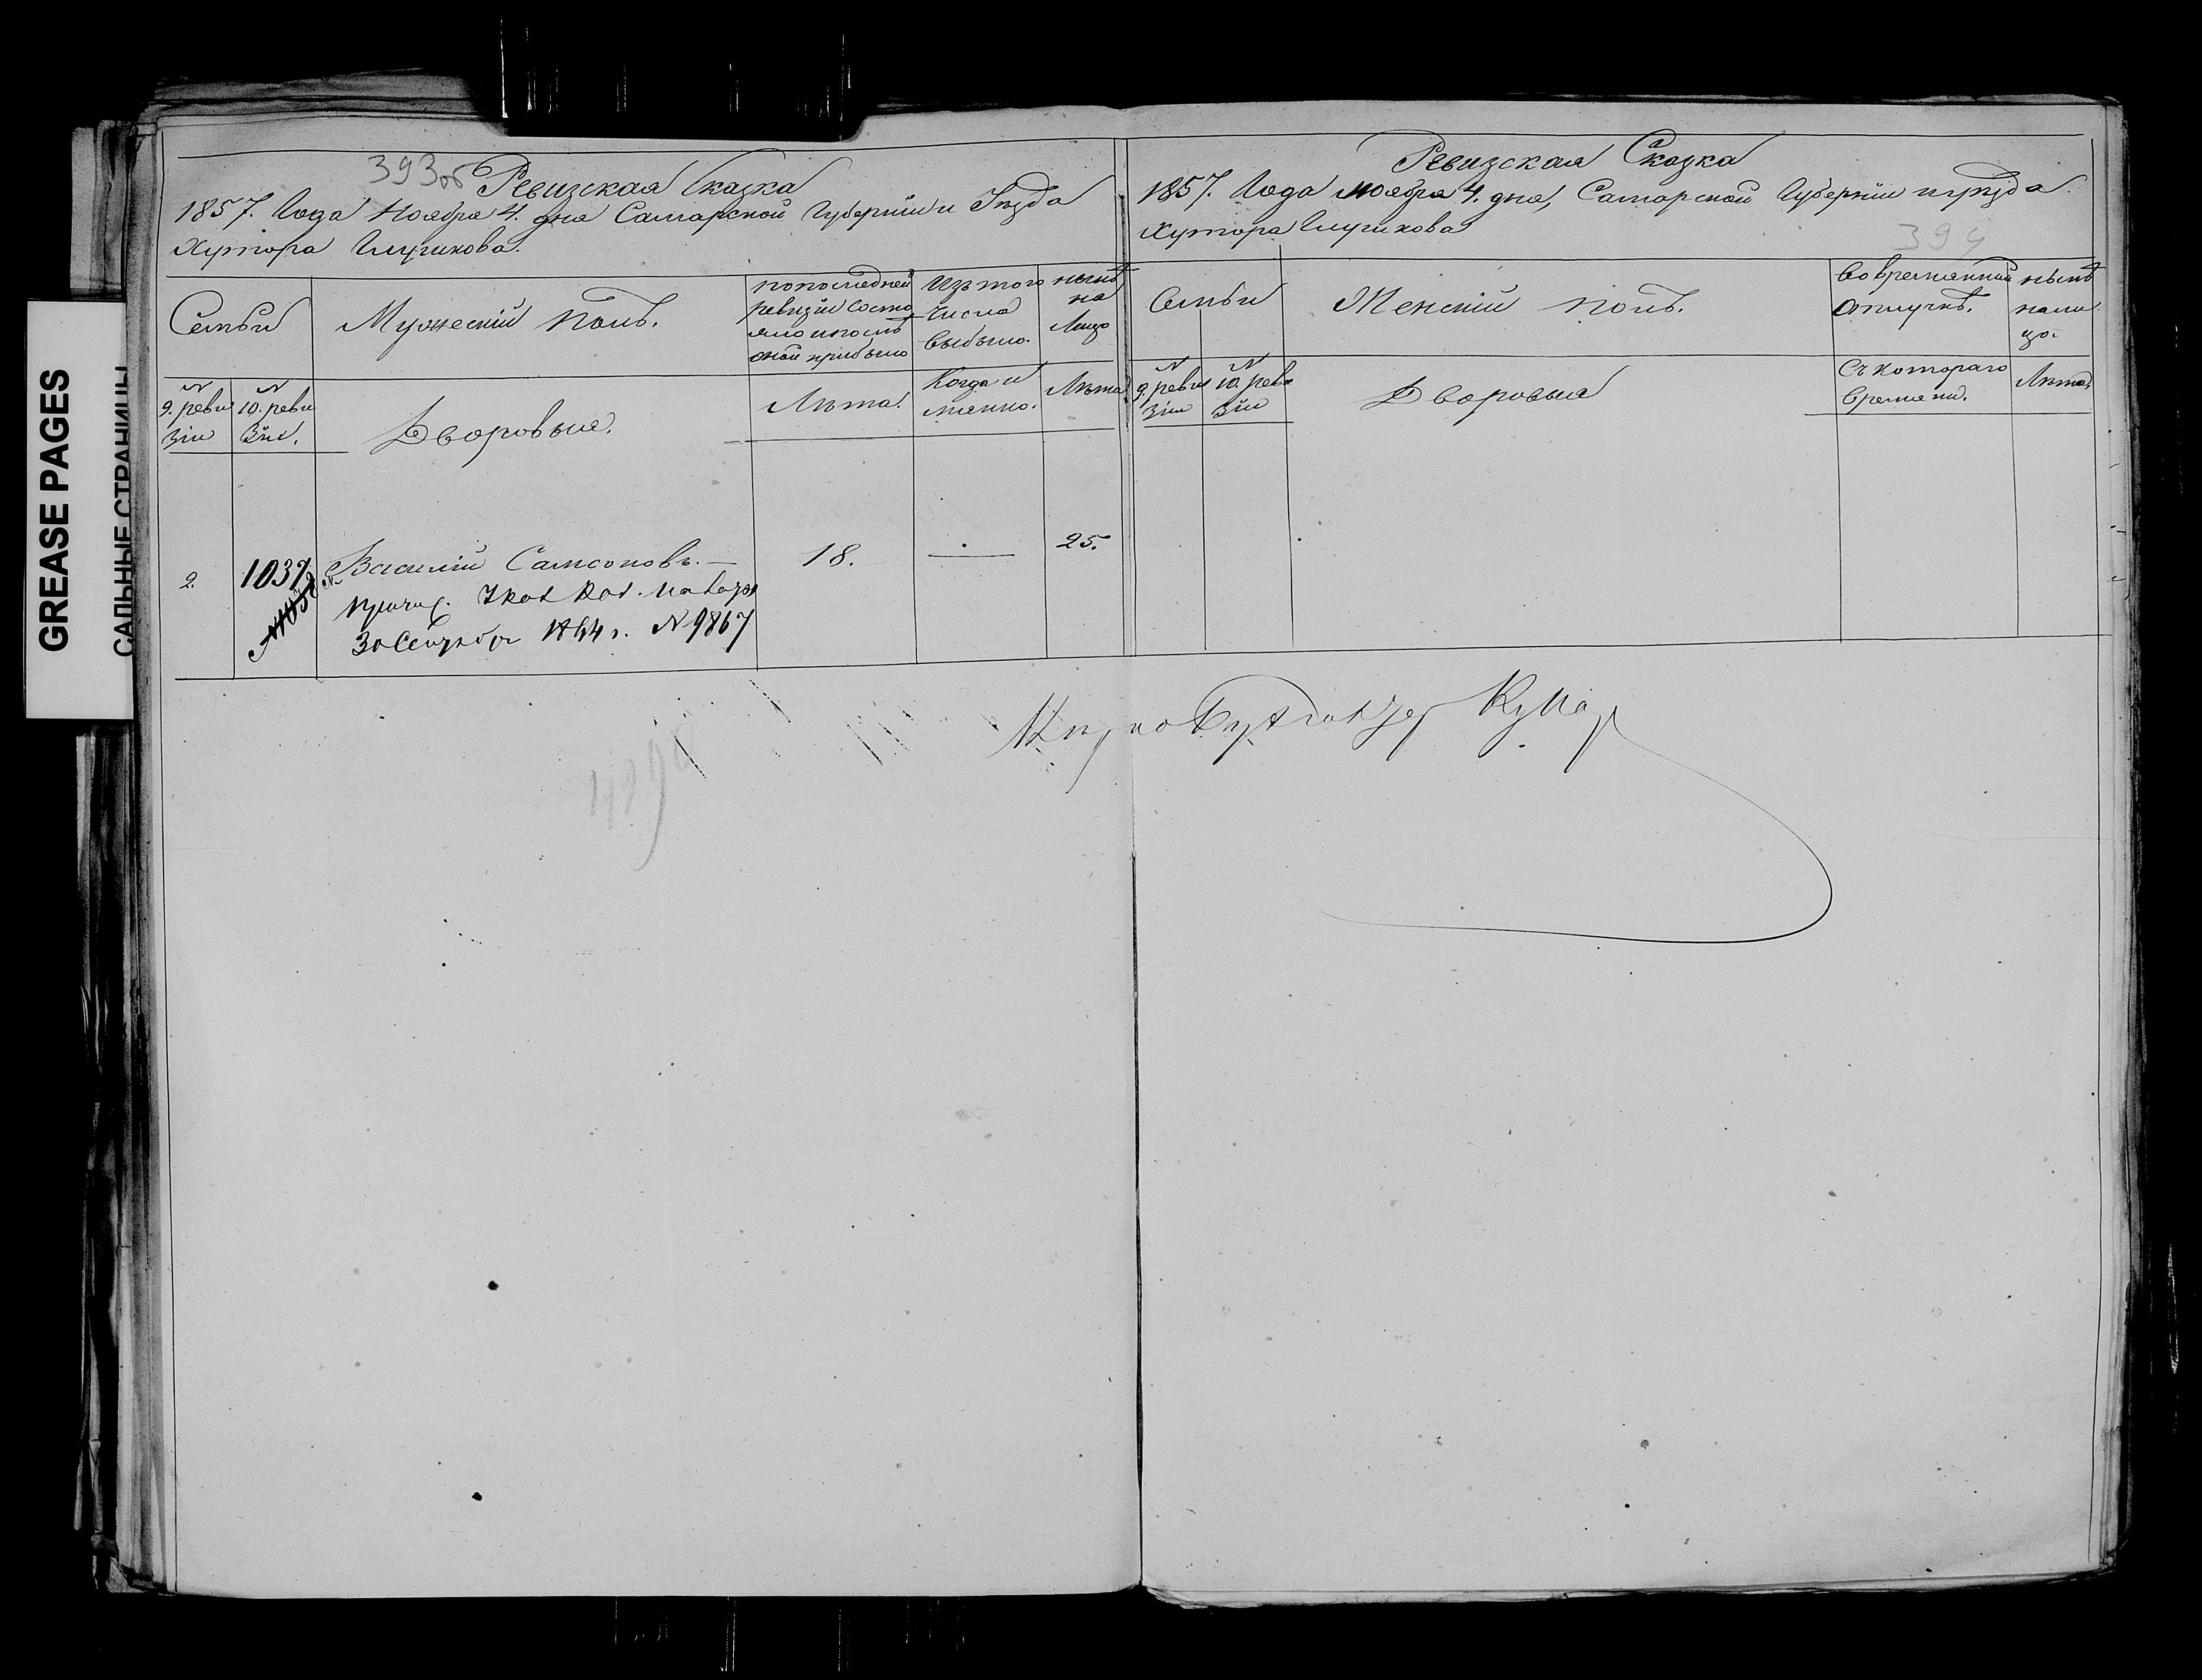 GREASE PAGES
САЛЬНЫЕ СТРАНИЦЫ
393об
Ревизская Сказка
1857. Года Ноября 4. дня Самарской Губерніи и Уѣзда
Хутора
Семьи
Мужескій полъ.
по последней
ревизіи состо
яло и послѣ
оной прибыло
Изъ того
числа
выбыло.
нынѣ
на
лицо
№
9. реви
зіи
№
10. реви
зіи.
Дворовые.
Лѣта.
Когда и
менно.
Лѣта
2.
1037
Василій Самсоновъ. —
18.
—
25.
Причис.
30 Сентября г. № 9867
Ревизская Сказка
1857. Года ноября 4. дня, Самарской Губерніи и уѣзда.
Хутора
394
Семьи
Женскій полъ.
Во временной
отлучкѣ.
нынѣ
нали
цо.
№
9. реви
зіи
№
10. реви
зіи
Дворовые
Съ котораго
времени.
Лѣта